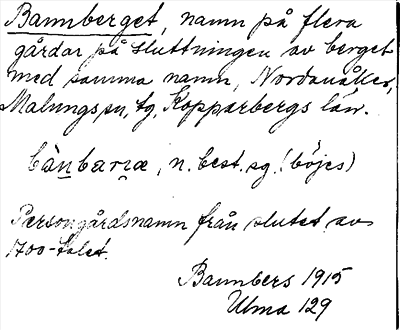 Bannberget, namn på flera
gårdar på sluttningen av berget
med samma namn, Nordanåker,
Malungs sn, Kopparbergs län.
bàn̠bær̠ıæ, n. best. sg. (böjes)
Persongårdsnamn från slutet av
1700-talet.
Bannbers 1915
Ulma 129